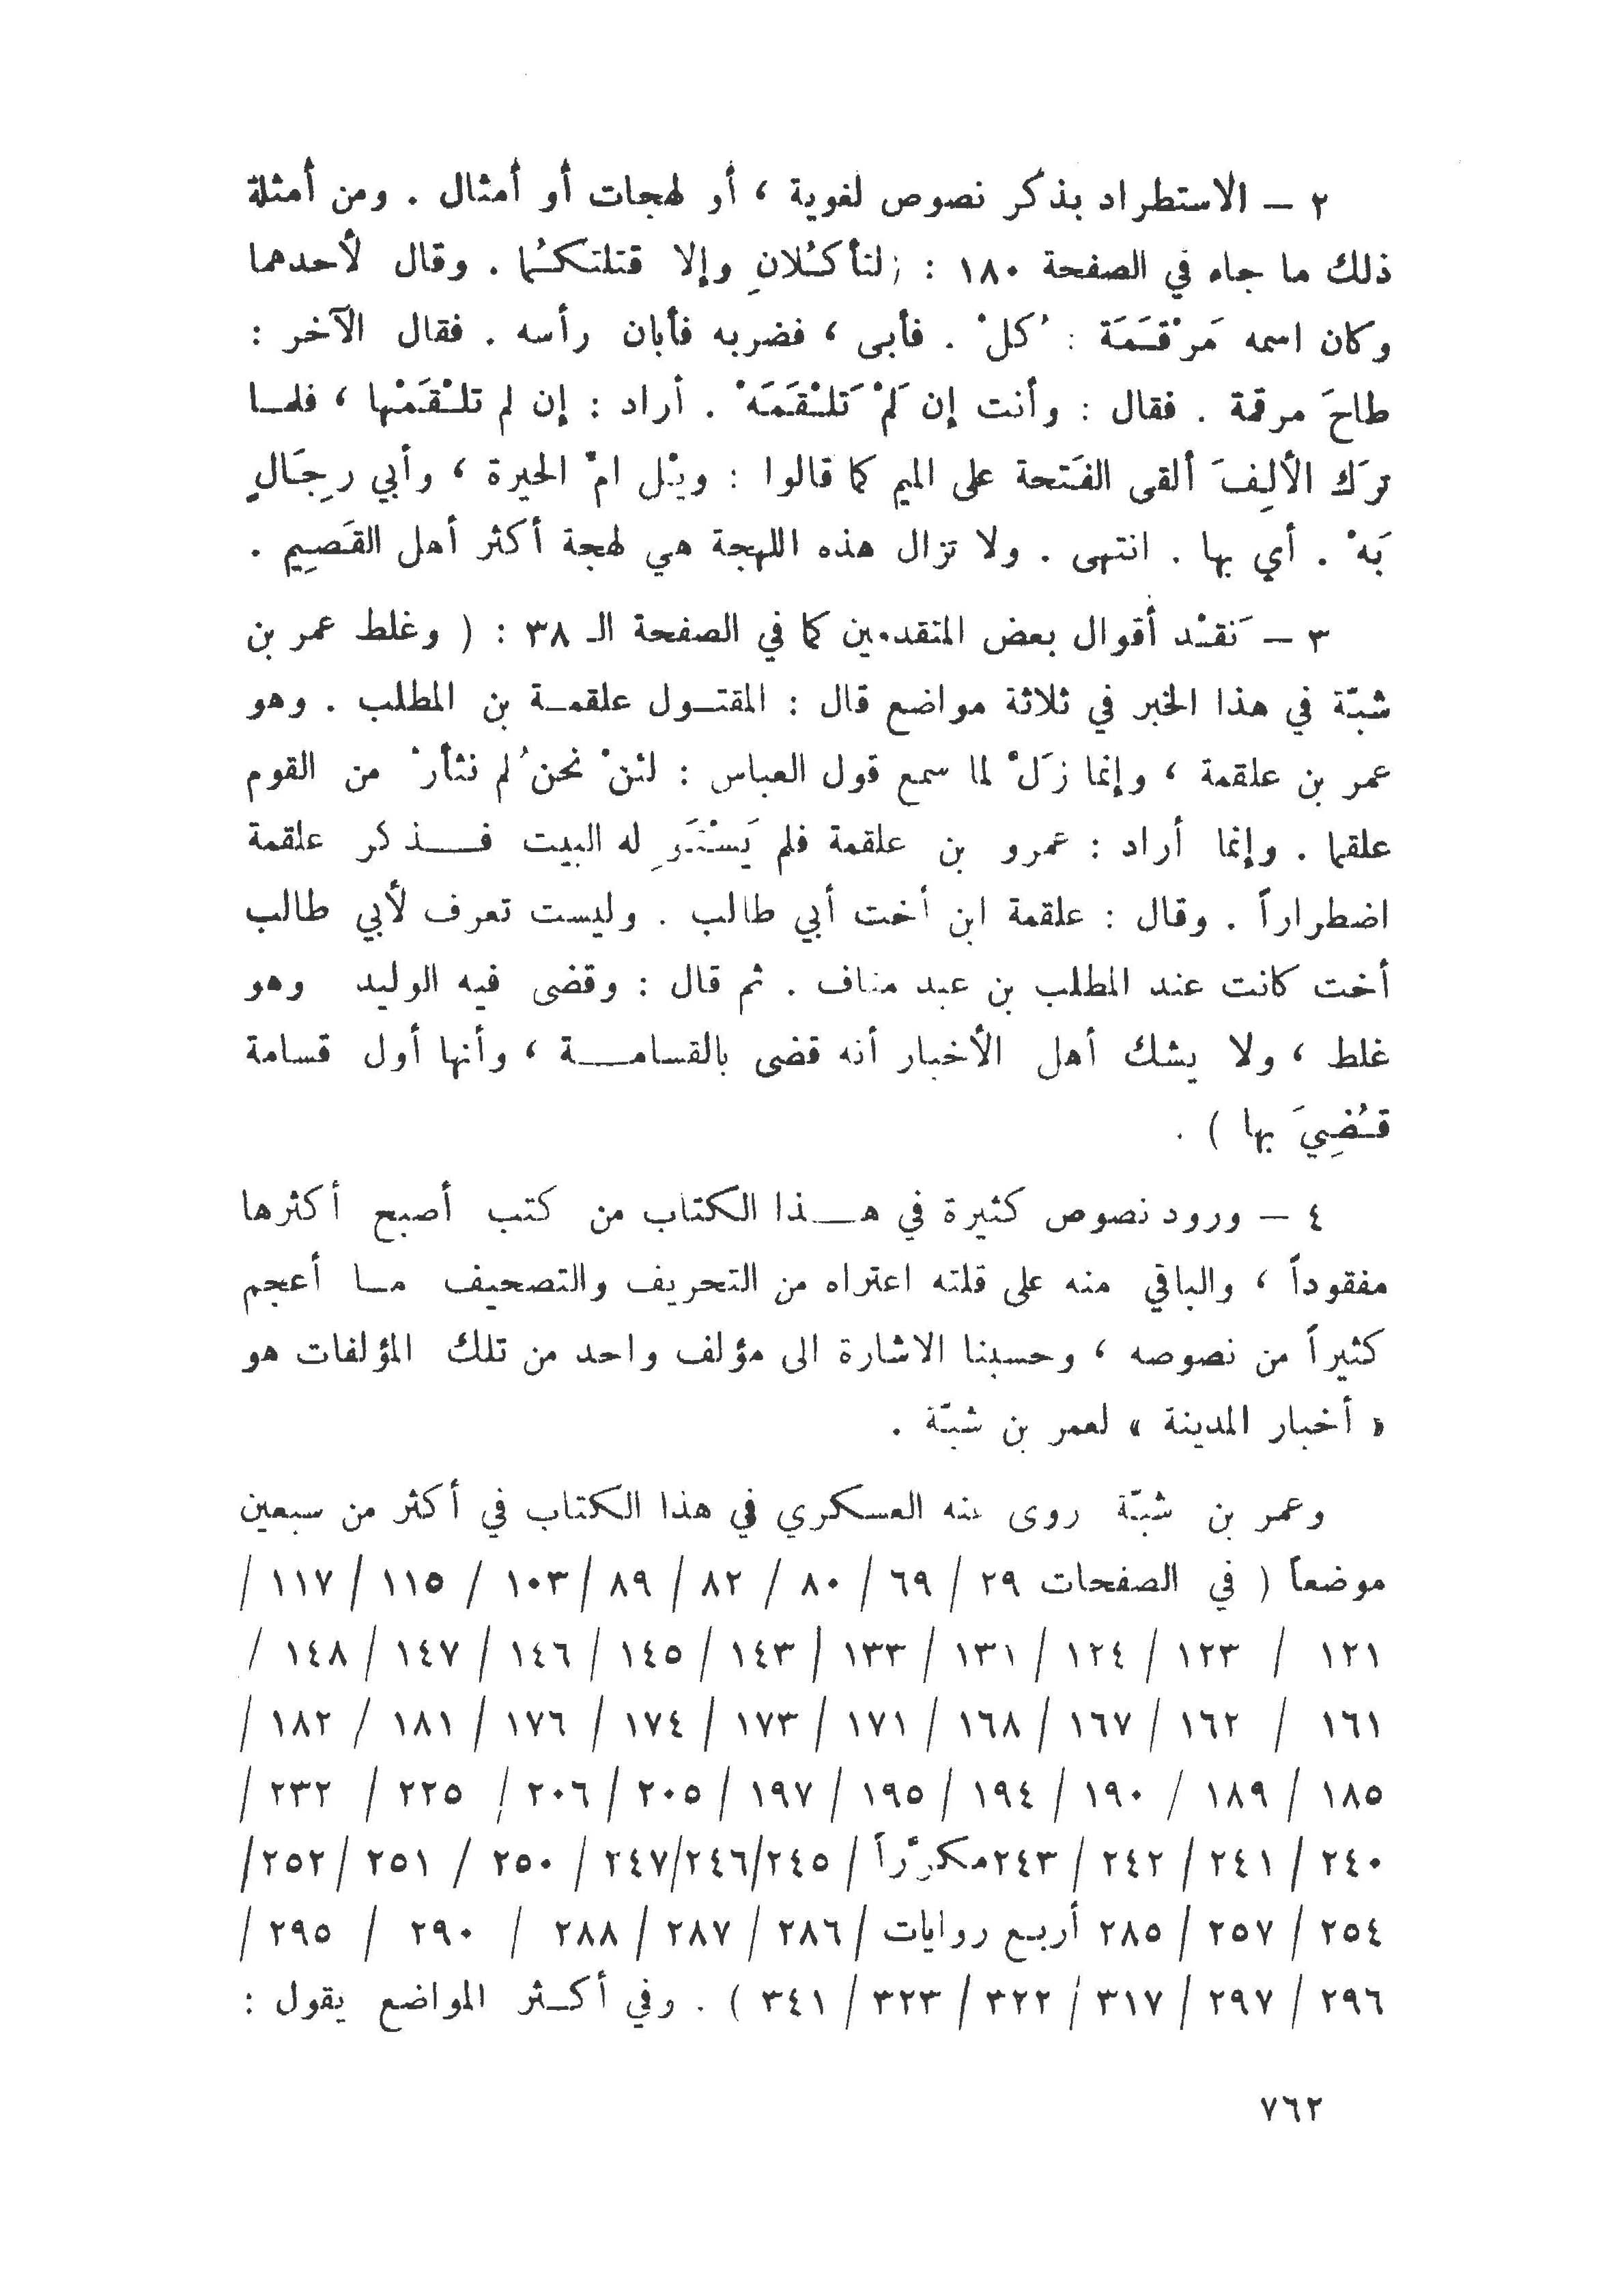 ٢ – الاستطراد بذكر نصوص لغوية ، أو لهجات أو أمثال . ومن أمثلة
ذلك ما جاء في الصفحة ١٨٠ : لتأكُلانِ وإلا قتلتكُما . وقال لأحدهما
وكان اسمه مَرْقَمَة : كُلْ . فأبى ، فضربه فأبان رأسه . فقال الآخر :
طاحَ مرقمة . فقال : وأنت إن لَمْ تَلْقَمَهْ . أراد : إن لم تلْقَمْها ، فلمـا
ترَك الألِفَ ألقى الفَتحة على الميم كما قالوا : ويْل امّ الحيرة ، وأبي رِجَالٍ
بَهْ . أي بها . انتهى . ولا تزال هذه اللهجة هي لهجة أكثر أهل القَصِيم .
٣ – نَقْد أقوال بعض المتقدمين كما في الصفحة الـ ٣٨ : ( وغلط عمر بن
شبّة في هذا الخبر في ثلاثة مواضع قال : المقتـول علقمـة بن المطلب . وهو
عمر بن علقمة ، وإنما زَلّ لما سمع قول العباس : لئنْ نحنُ لم نثأرْ من القوم
علقما . وإنما أراد : عمرو بن علقمة فلم يَسْتَوِ له البيت فـــذكر علقمة
اضطراراً . وقال : علقمة ابن أخت أبي طالب . وليست تعرف لأبي طالب
أخت كانت عند المطلب بن عبد مناف . ثم قال : وقضى فيه الوليد وهو
غلط ، ولا يشك أهل الأخبار أنه قضى بالقسامـــة ، وأنها أول قسامة
قُضِيَ بها ) .
٤ – ورود نصوص كثيرة في هـــذا الكتاب من كتب أصبح أكثرها
مفقوداً ، والباقي منه على قلته اعتراه من التحريف والتصحيف مـا أعجم
كثيراً من نصوصه ، وحسبنا الاشارة الى مؤلف واحد من تلك المؤلفات هو
« أخبار المدينة » لعمر بن شبّة .
وعمر بن شبّة روى عنه العسكري في هذا الكتاب في أكثر من سبعين
موضعاً ( في الصفحات ٢٩ / ٦٩ / ٨٠ / ٨٢ / ٨٩ / ١٠٣ / ١١٥ / ١١٧ /
١٢١ / ١٢٣ / ١٢٤ / ١٣١ / ١٣٣ / ١٤٣ / ١٤٥ / ١٤٦ / ١٤٧ / ١٤٨ /
١٦١ / ١٦٢ / ١٦٧ / ١٦٨ / ١٧١ / ١٧٣ / ١٧٤ / ١٧٦ / ١٨١ / ١٨٢ /
١٨٥ / ١٨٩ / ١٩٠ / ١٩٤ / ١٩٥ / ١٩٧ / ٢٠٥ / ٢٠٦ / ٢٢٥ / ٢٣٢ /
٢٤٠ / ٢٤١ / ٢٤٢ / ٢٤٣مكرّراً / ٢٤٥/٢٤٦/٢٤٧ / ٢٥٠ / ٢٥١ / ٢٥٢/
٢٥٤ / ٢٥٧ / ٢٨٥ أربع روايات / ٢٨٦ / ٢٨٧ / ٢٨٨ / ٢٩٠ / ٢٩٥ /
٢٩٦ / ٢٩٧ / ٣١٧ / ٣٢٢ / ٣٢٣ / ٣٤١ ) . وفي أكـثر المواضع يقول :
٧٦٢